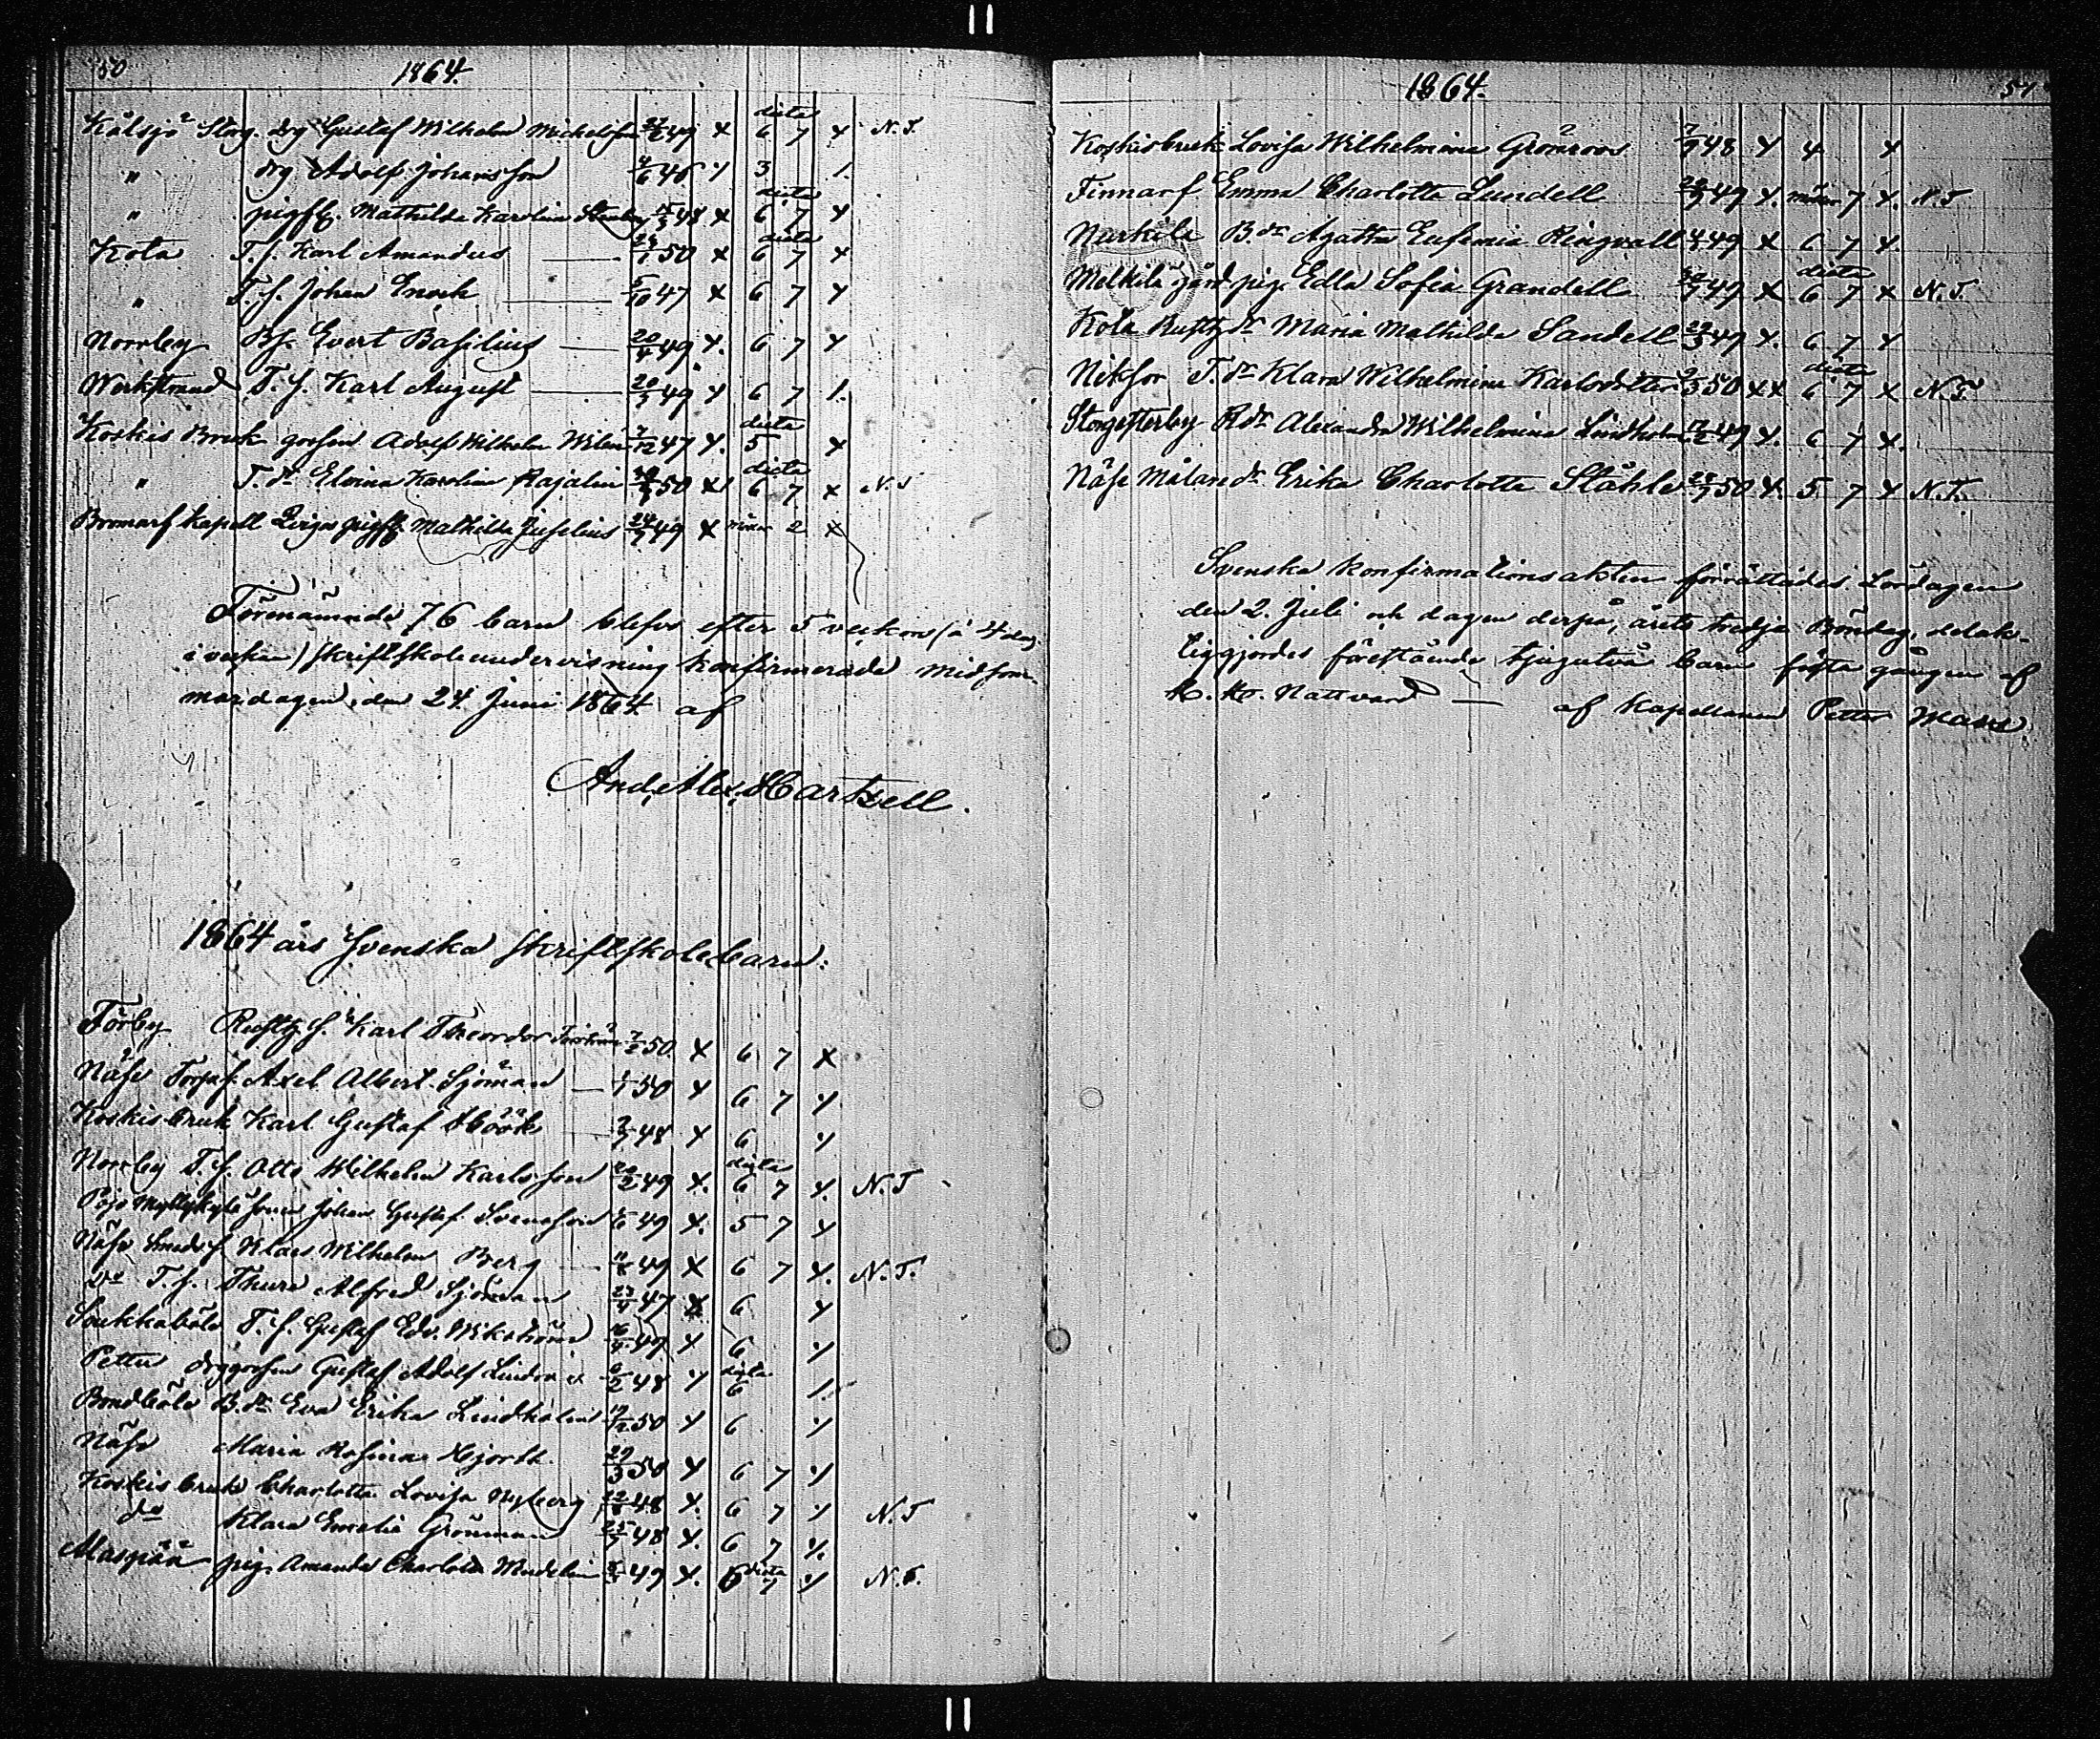 50
1864.
Kålsjö Storg. drg Gustaf Wilhelm Michelsson 49 x dicta 6 7 x N.T.
" drg Adolf Johansson 4/6 46 x 3 x
" pigfl. Mathilda Karolina 48 x dicta 6 7 x
Kota T.s. Karl Amandus — 50 x dicta 6 7 x
" T.s. Johan Enok — 5/10 47 x 6 7 x
Norrby Bs. Evert Basilius — 20/4 49 x. 6 7 x
Werkstrand T.s. Karl August — 49 x 6 7 x
Koskis Bruk gossen Adolf Wilhelm Wilen 7/12 47 x. dicta 5 x
" T.dr Elvina Karolina Rajalin 50 x dicta 6 7 x N.T
Bromarf Kapell pigfl. Mathilda Juselius 49 x 2 x
Förnämnde 76 barn blefvo efter 5 veckors (à 4 dag.
i veckan) skriftskoleundervisning konfirmerade midsom-
mardagen, den 24 Juni 1864 af
And. Alex. Hartzell.
1864 års Svenska Skriftskolebarn:
Förby Rusth. s. Karl Theordor 50 x 6 7 x
Näse Torps. Axel Albert Sjöman — 50 x 6 7 x
Koskis bruk Karl Gustaf Höök — 48 x 6 x
Norrby T.s. Otto Wilhelm Karlsson 20/2 49 x. dicta 6 7 x. N.T
Pojo sonen Johan Gustaf Svensson 49 x. 5 7 x
Näse Smeds s. Klaes Wilhelm Berg — 11/8 49 x 6 7 x. N.T.
Do T.s. Thure Alfred Sjöman 23/4 47 x 6 x
T.s. Gustaf Edv. Wikström 16/4 49 x 6 x
Pettu drggossen Gustaf Adolf 48 x dicta 6 x
Bondböle B.dr Eva Erika Lindholm 50 x 6 x
Näse Maria Rosina Hjorth 29/3 50 x 6 7 x
Koskis bruk Charlotta Lovisa Nyberg 22/8 48 x. 6 7 x N.T
do Klara Emelie Grönman 48 x. 6 7 x.
pig. Amanda Charlotta 49 x. dicta 6 7 x N.T.
1864.
51
Koskisbruk Lovisa Wilhelmina Grönroos 48 x 4 x
Finnarf Emma Charlotta Lundell 49 x. 7 x. N.T
Nurkila B.dr Agatha Eufemia Ringvall 49 x 6 7 x.
Melkila gård pig. Edla Sofia Grandell 49 x dicta 6 7 x N.T.
Kota Rusth dr Maria Mathilda Sandell 49 x. 6 7 x
Niksor T.dr Klara Wilhelmina Karlsdotter 50 x x dicta 6 7 x N.T.
Storgesterby Rdr Alexandra Wilhelmina Lindholm 49 x. 6 7 x.
Näse Målare dr Erika Charlotta Ståhle 50 x. 5 7 x N.T.
Svenska konfirmationsakten förrättades Lördagen
den 2. Juli och dagen derpå, årets tredje Böndag, delak-
tiggjordes förestående tjugutvå barn första gången af
H. H. Nattvard — af Kapellanen Petter Mans